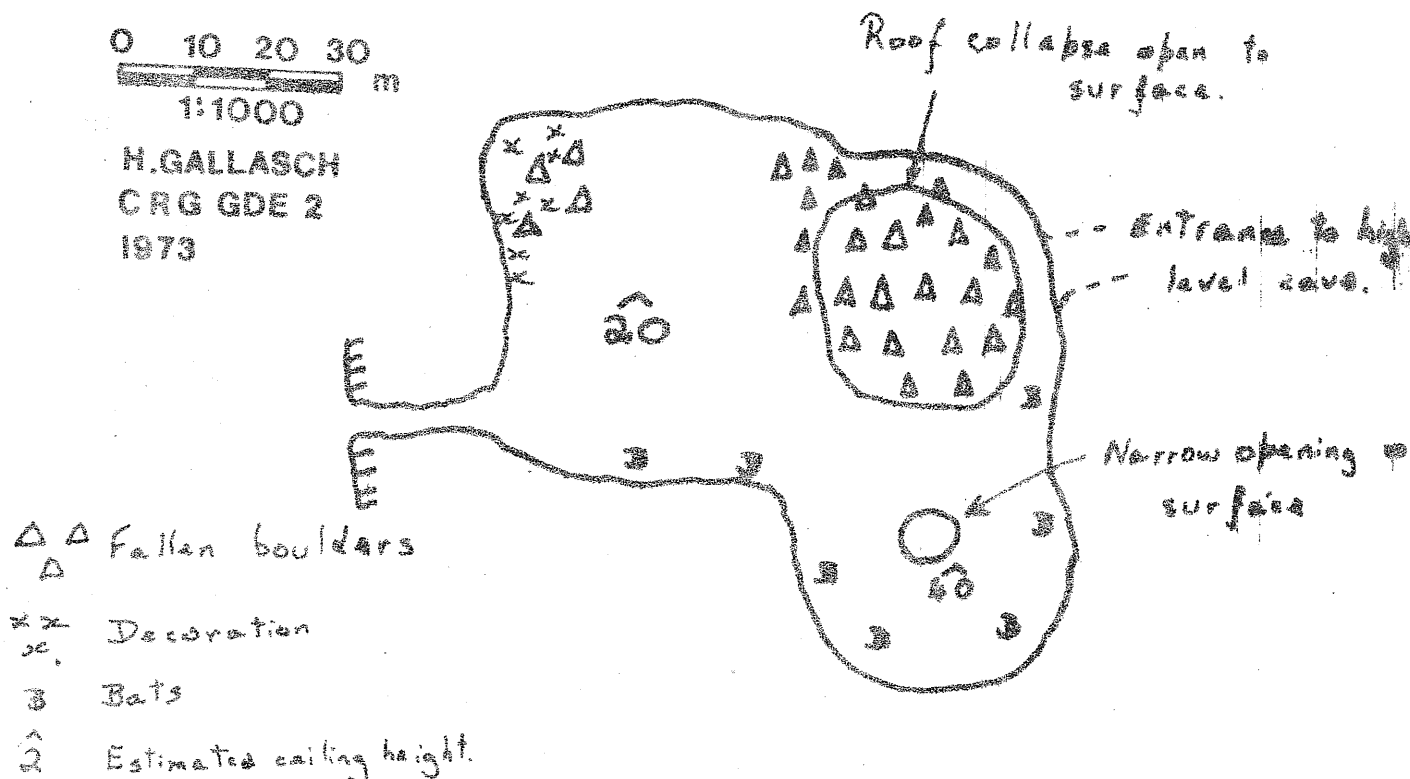 0 10 20 30
m
1:1000
H.GALLASCH
CRG GDE 2
1973
Roof collapse open to
surface.
Entrance to high
level cave.
20
Narrow opening
surface
40
B
B
B
B
B
B
B
Fallen boulders
Decoration
B Bats
2 Estimated ceiling height.